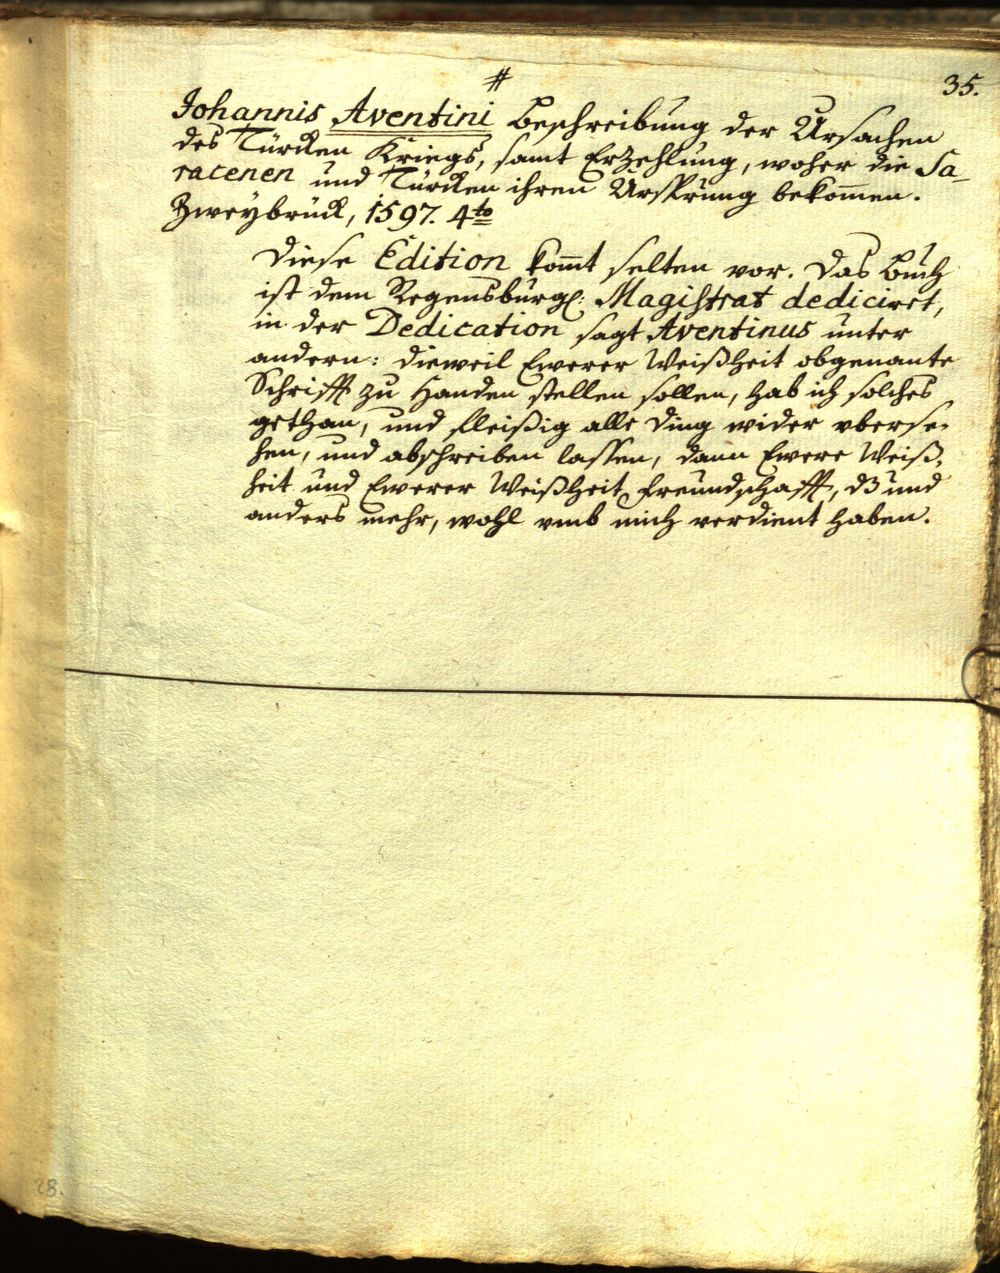 #
35.
Johannis Aventini Beschreibung der Ursachen
des Türcken Kriegs, samt Erzehlung, woher die Sa-
racenen und Türcken ihren Ursprung bekom̄en.
Zweybrück, 1597. 4to
Diese Edition kom̄t selten vor. Das Buch
ist dem Regensburgl: Magistrat dediciret,
in der Dedication sagt Aventinus unter
andern: dieweil Ewerer Weißheit obgenante
Schrifft zu Handen stellen sollen, hab ich solches
gethan, und fleißig alle Ding wider vberse-
hen, und abschreiben lassen, dann Ewere Weiß-
heit und Ewerer Weißheit Freundschafft, dz und
anders mehr, wohl vmb mich verdient haben.
28.